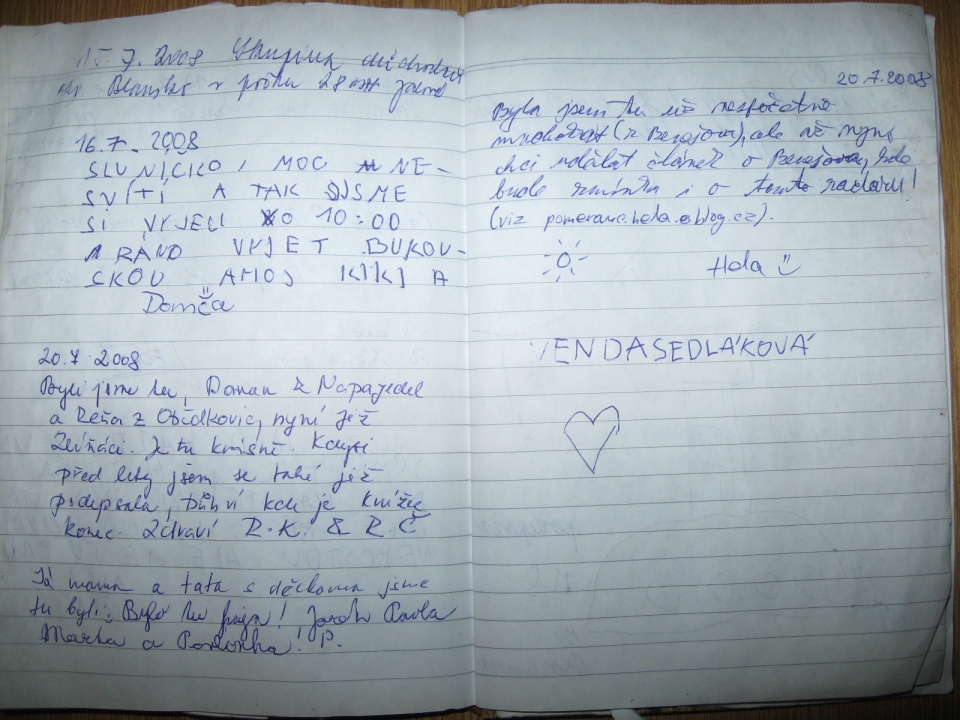 15. 7. 2008 Skupina důchodců
Blansko v počtu 28
16.7. 2008
SLUNÍČKO, MOC NE-
SVÍTÍ A TAK JSME
SI VYJELI O 10:00
RÁNO VYJET BUKOV-
SKOU AHOJ KIKI A
Domča
20.7.2008
Byli jsme tu, Roman z Napajedel
a Réňa z , nyní již
Zlíňáci. Je tu krásně. Kdysi
před lety jsem se také již
podepsala, Bůhví kde je knížce
konec. Zdraví R.K. & R.Č
Já mama a tata s děckama jsme
tu byli. Bylo tu fajn! Pavla
Marka a ! P.
20.7.2008
Byla jsem tu už nespočetno
mnohokrát (z Benešova), ale až nyní
chci udělat článek o Benešovu, kde
bude zmínka i o tomto radaru!
(viz pomeranc.hela.eblog.cz).
Hela
VENDASEDLÁKOVÁ